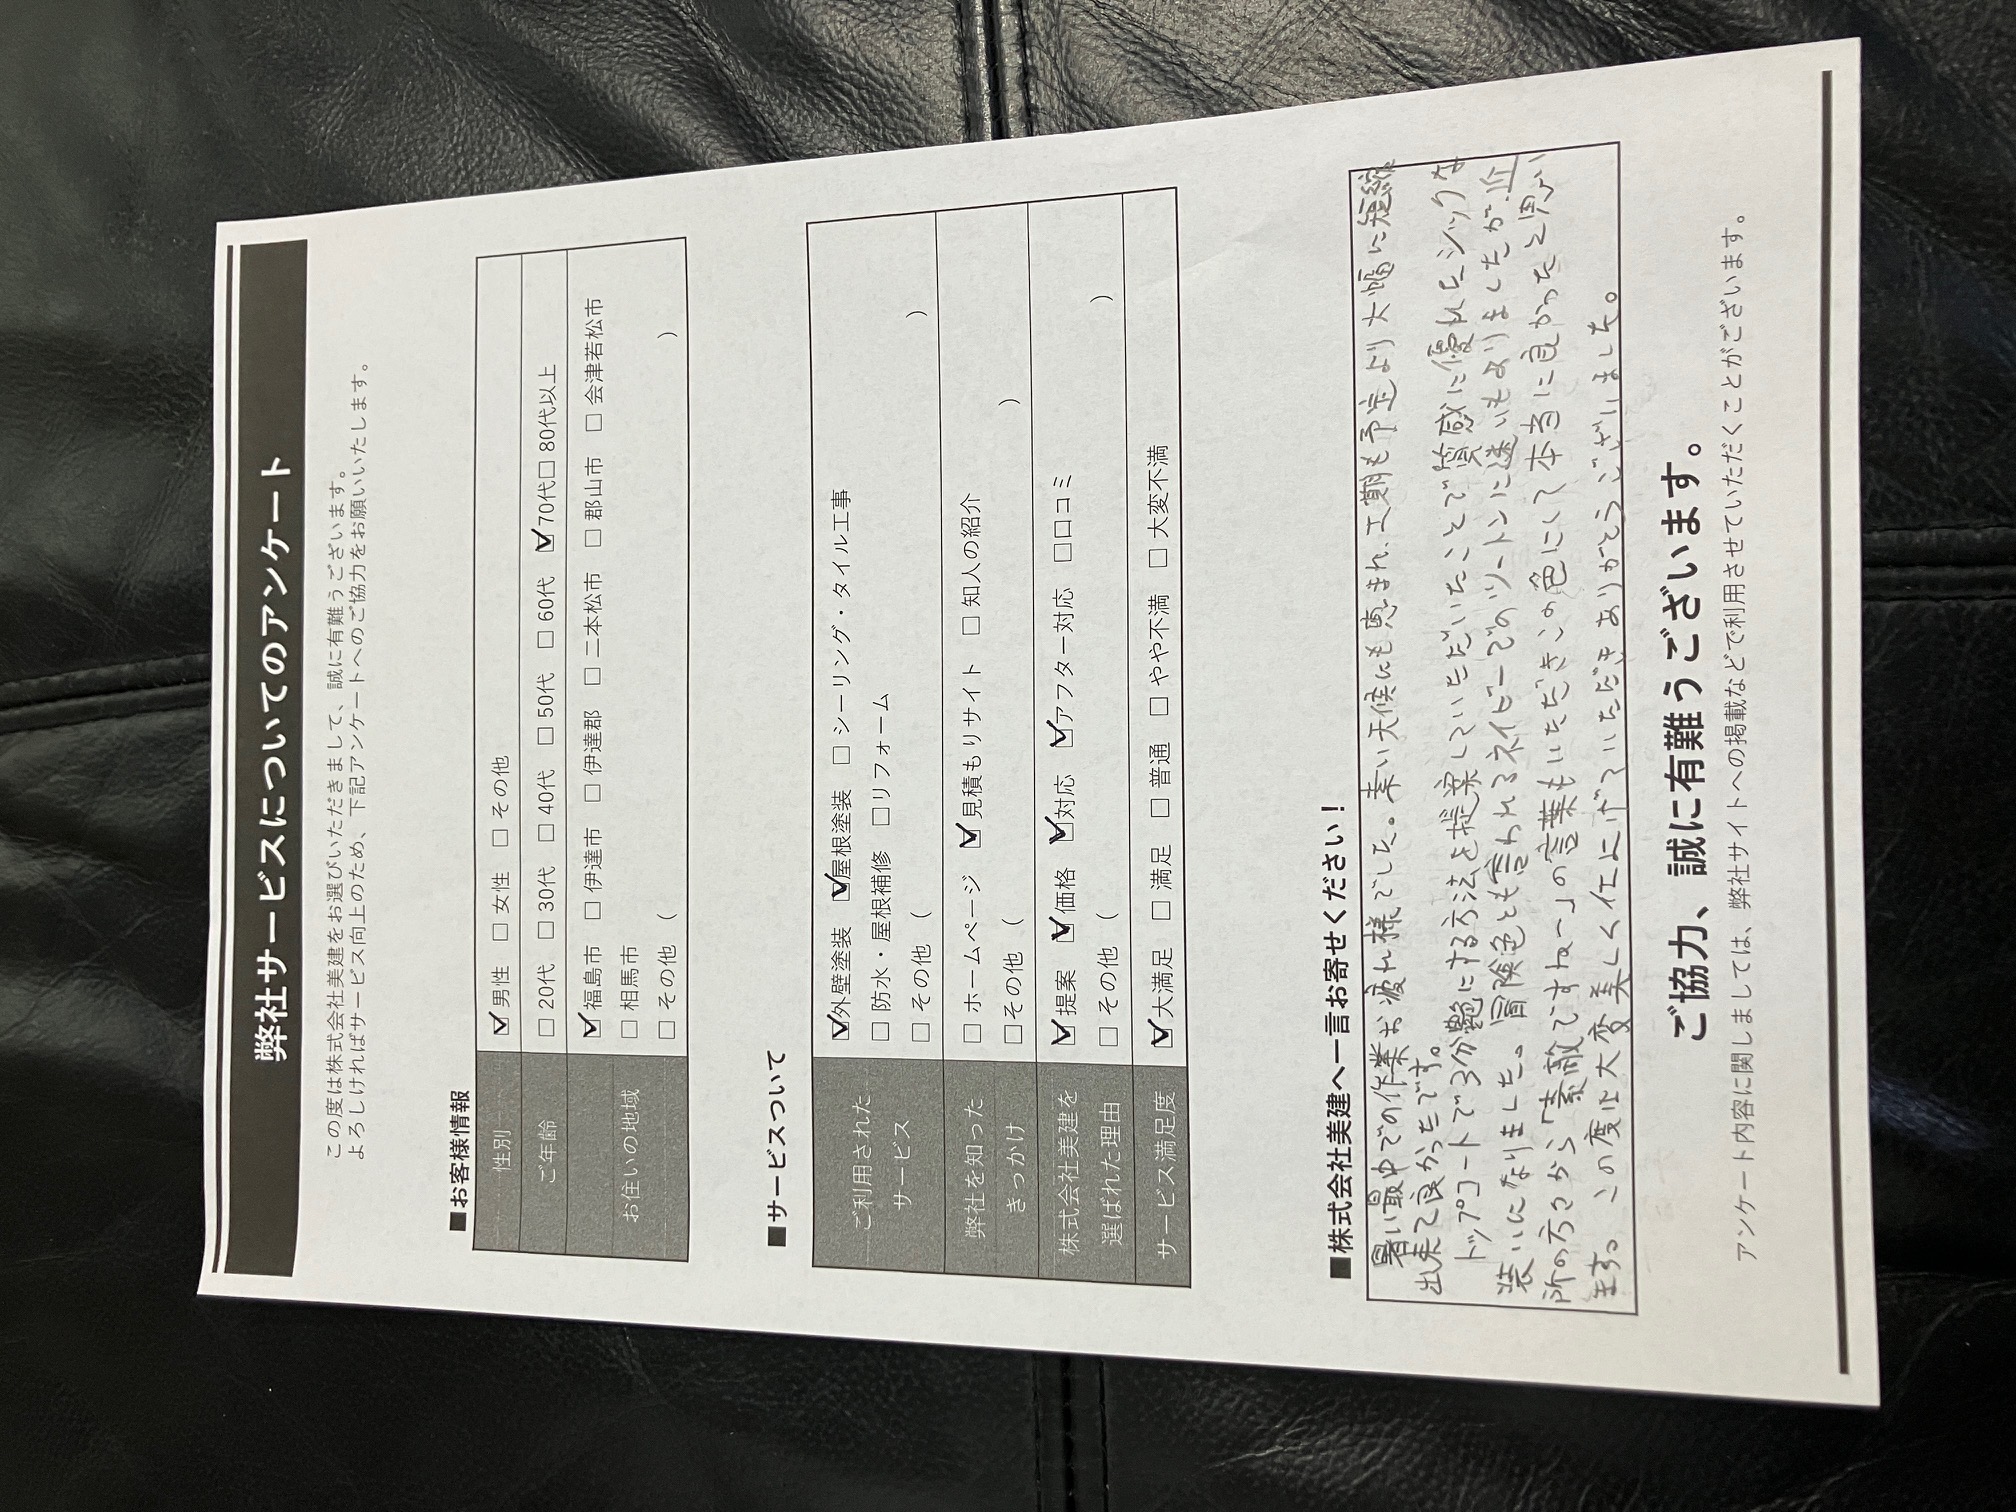 弊社サービスについてのアンケート
この度は株式会社美建をお選びいただきまして、誠に有難うございます。
よろしければサービス向上のため、下記アンケートへのご協力をお願いいたします。
■お客様情報
性別 ☑男性 □ 女性 □ その他
ご年齢 □ 20代 □ 30代 □ 40代 □ 50代 □ 60代 ☑70代□ 80代以上
お住いの地域 ☑福島市 □ 伊達市 □ 伊達郡 □ 二本松市 □ 郡山市 □ 会津若松市
□ 相馬市
□ その他 ( )
■サービスついて
ご利用された
サービス
☑外壁塗装 ☑屋根塗装 □ シーリング・タイル工事
□ 防水・屋根補修 □リフォーム
□ その他 ( )
弊社を知った
きっかけ
□ ホームページ ☑見積もりサイト □ 知人の紹介
□その他 ( )
株式会社美建を
選ばれた理由
☑提案 ☑価格 ☑対応 ☑アフター対応 □口コミ
□ その他 ( )
サービス満足度 ☑大満足 □ 満足 □ 普通 □ やや不満 □ 大変不満
■株式会社美建へ一言お寄せください！
暑い最中での作業お疲れ様でした。幸い天候にも恵まれ、工期も予定より大幅に短縮
出来て良かったです。
トップコートで3分艶にする方法を提案していただいたことで質感に優れたシックな
装いになりました。冒険色とも言われるネイビーでのツートンに迷いもありましたが、近
所の方々から「素敵ですねー」の言葉もいただきこの色にして本当に良かったと思い
ます。この度は大変美しく仕上げていただきありがとうございました。
ご協力、誠に有難うございます。
アンケート内容に関しましては、弊社サイトへの掲載などで利用させていただくことがございます。